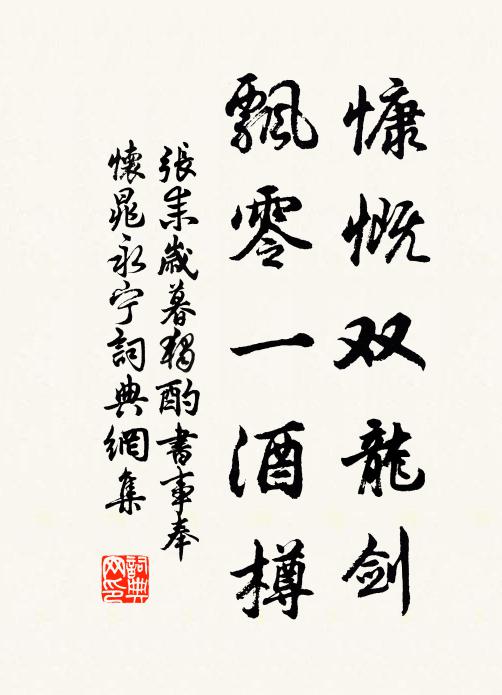 慷慨双龍剑
飄零一酒樽
張耒歲暮獨酌書事奉
懷晁永宁詞典網集
詞典网印